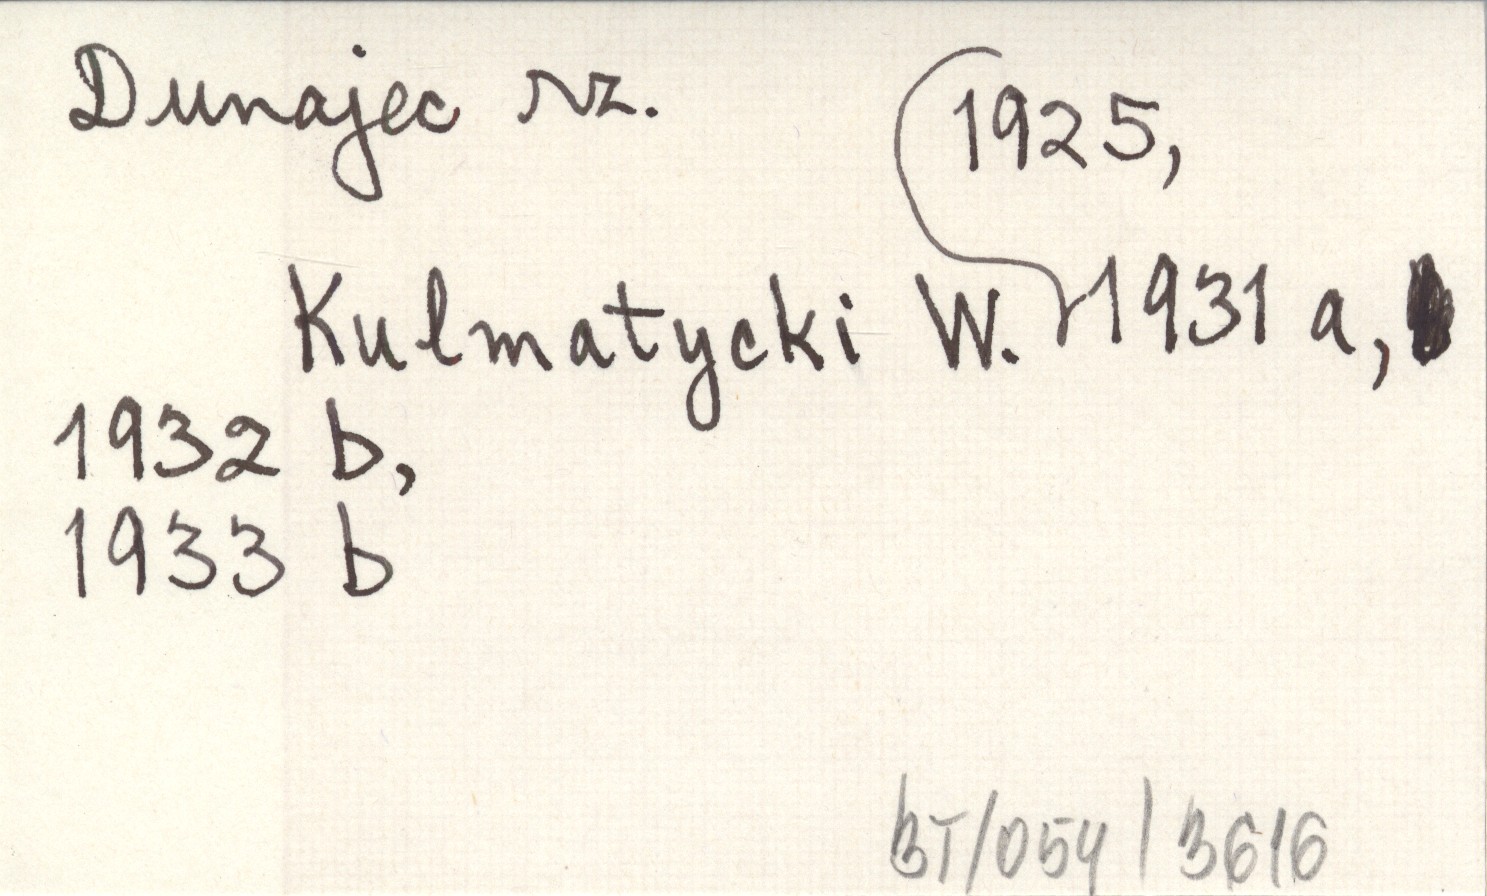 Dunajec rz.
1925,
Kulmatycki W. 1931 a,
1932 b,
1933 b
BT/054/3616